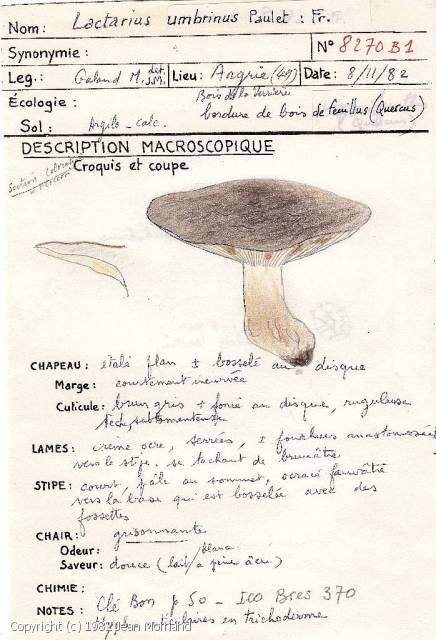 Nom: Lactarius umbrinus Paulet : Fr.
Synonymie: N° 8270B1
Leg.: Galand M. dét. J.M. Lieu: Angrie (49) Date: 8/11/82
Écologie: Bois de la Verrière
bordure de bois de feuillus (Quercus)
Sol: Argilo-calc.
DESCRIPTION MACROSCOPIQUE
Croquis et coupe
Section
CHAPEAU: étalé plan ± bosselé au disque
Marge: courtement incurvée
Cuticule: brun gris + foncé au disque, ruguleuse
sèche subtomenteuse
LAMES: crème ocre, serrées, ± fourchues anastomosées
vers le stipe. se tachant de brunâtre
STIPE: court, pâle au sommet, ocracé fauvâtre
vers la base qui est bosselée avec des
fossettes
CHAIR: grisonnante
Odeur:
Saveur: douce (lait blanc à peine âcre)
CHIMIE:
NOTES: Clé Bon p 50 - Ico Bres 370
en trichoderme
Copyright (c) 1982 Jean Mornand